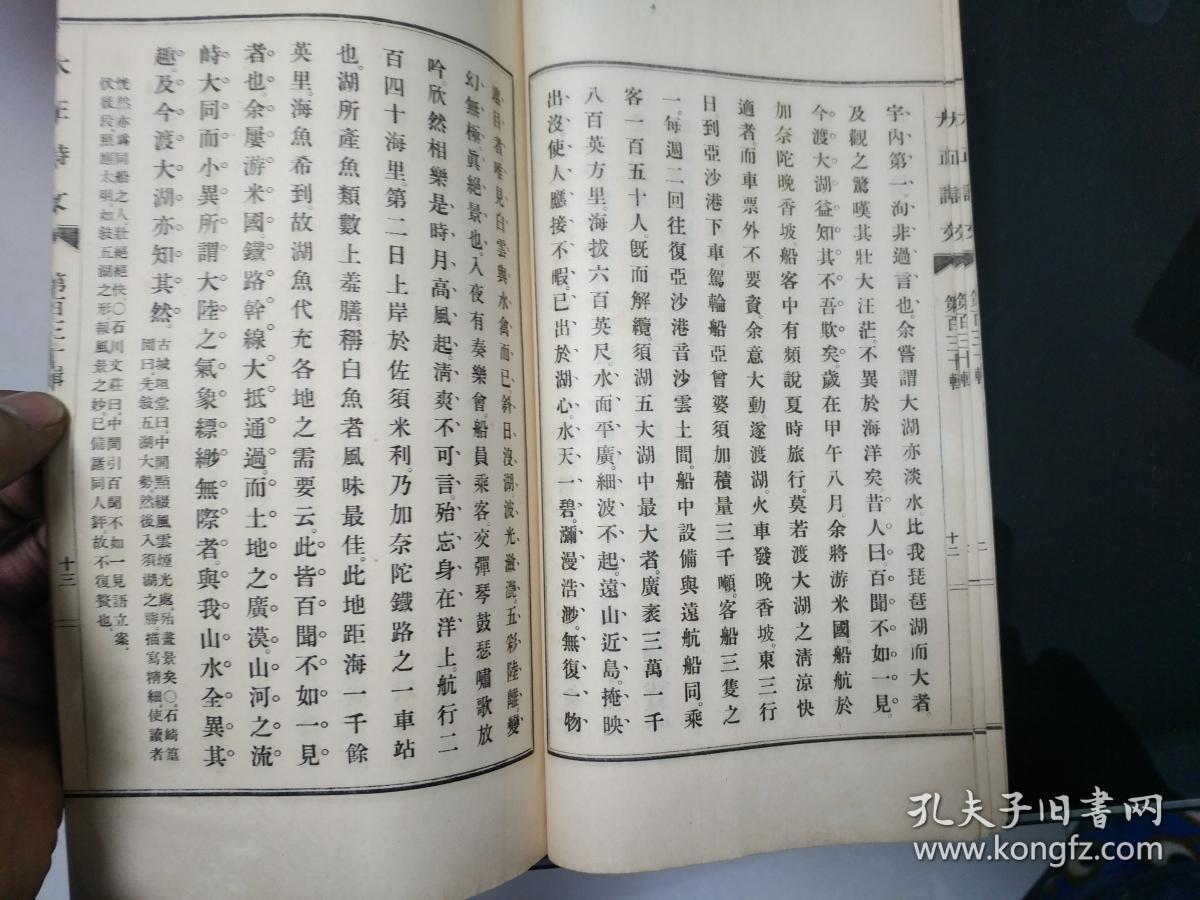 字內第一洵非過言也。余嘗謂大湖亦淡水。比我琵琶湖而大者。
及觀之驚嘆其壯大汪茫。不異於海洋矣。昔人曰。百聞不如一見。
今渡大湖益知其不吾欺矣。歲在甲午八月。余將游米國。船航於
加奈陀晚香坡。船客中有頻說夏時旅行。莫若渡大湖之清涼快
適者。而車票外不要資。余意大動。遂渡湖。火車發晚香坡。東三行
日到亞沙港下車。駕輪船亞曾婆須加。積量三千噸。客船三隻之
一。每週二回往復亞沙港音沙雲土間。船中設備與遠航船同。乘
客一百五十人。既而解纜。須湖五大湖中最大者。廣袤三萬一千
八百英方里。海拔六百英尺。水面平廣。細波不起。遠山近島。掩映
出沒。使人應接不暇。已出於湖心。水天一碧。瀰漫浩渺。無復一物
遮目者。唯見白雲與水禽而已。斜日沒湖。波光瀲灧。五彩陸離。變
幻無極。眞絕景也。入夜有奏樂會。船員乘客。交彈琴鼓瑟。嘯歌放
吟。欣然相樂。是時月高風起。清爽不可言。殆忘身在洋上。航行二
百四十海里。第二日上岸於佐須米利。乃加奈陀鐵路之一車站
也。湖所產魚類數上羞膳。稱白魚者風味最佳。此地距海一千餘
英里。海魚希到。故湖魚代充各地之需要云。此皆百聞不如一見
者也。余屢游米國。鐵路幹線大抵通過。而土地之廣漠。山河之流
峙。大同而小異。所謂大陸之氣象縹緲無際者。與我山水全異其
趣。及今渡大湖亦知其然。
古城坦堂曰。中間點綴風雲煙光處。殆畫景矣。〇石崎篁
園曰。先敍五湖大勢。然後入須湖之勝。描寫精細。使讀者
恍然亦爲同船之人。壯絕絕快。〇石川文莊曰。中間引百聞不如一見語立案。
伏後段照應太明。如敍五湖之形報風景之妙。已備諸同人評。故不復贅也。
第百三十輯
十二
第百三十輯
十三
孔夫子旧书网
www.kongfz.com